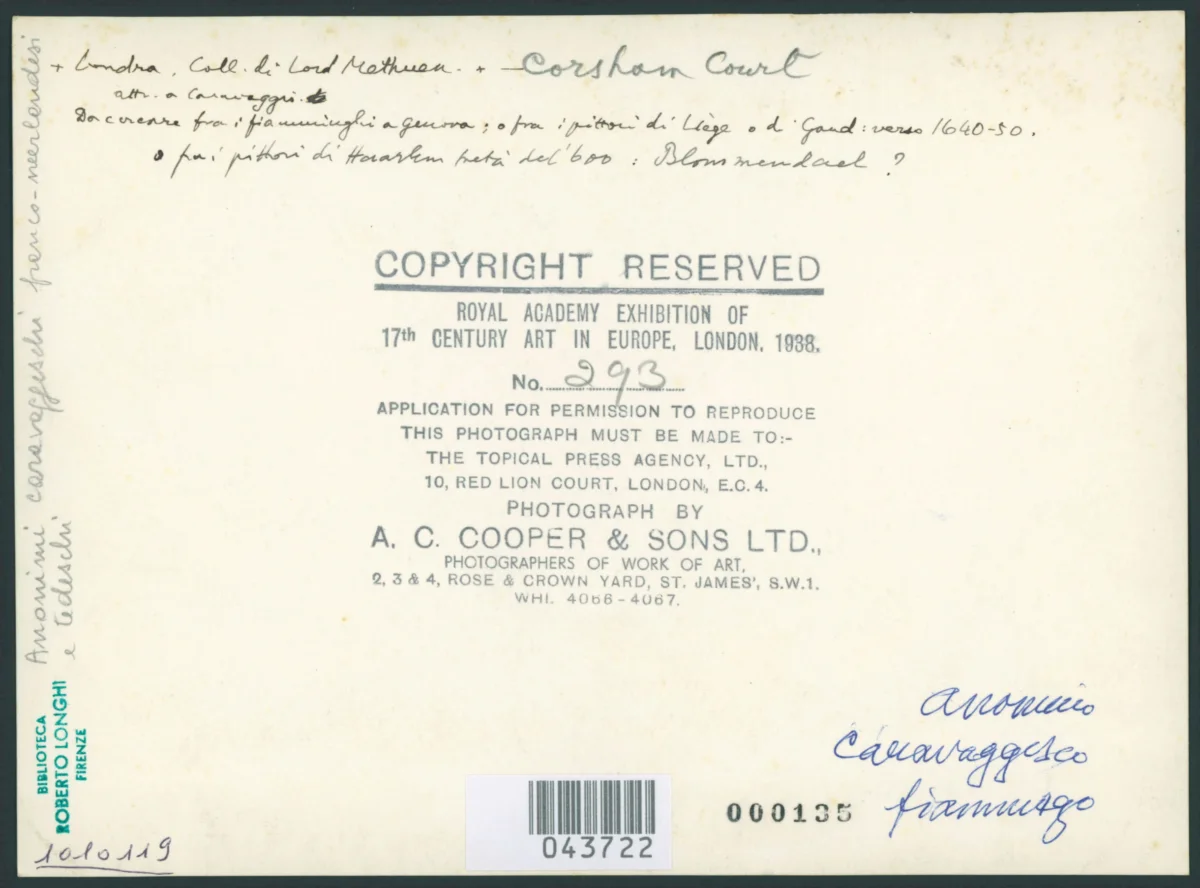 + Londra, Coll. di Lord Methuen. + — Corsham Court
attr. a Caravaggio
Da cercare fra i fiamminghi a Genova; o fra i pittori di Liège o di Gand: verso 1640-50.
o fra i pittori di Haarlem metà del '600: Blommendael?
COPYRIGHT RESERVED
ROYAL ACADEMY EXHIBITION OF
17th CENTURY ART IN EUROPE, LONDON, 1938.
No. 293
APPLICATION FOR PERMISSION TO REPRODUCE
THIS PHOTOGRAPH MUST BE MADE TO:-
THE TOPICAL PRESS AGENCY, LTD.,
10, RED LION COURT, LONDON, E.C.4.
PHOTOGRAPH BY
A. C. COOPER & SONS LTD.,
PHOTOGRAPHERS OF WORK OF ART,
2, 3 & 4, ROSE & CROWN YARD, ST. JAMES', S.W.1.
WHI. 4066-4067.
Anonimi caravaggeschi franco-neerlandesi
e tedeschi
BIBLIOTECA
ROBERTO LONGHI
FIRENZE
1010119
043722
000135
anonimo
Caravaggesco
fiammingo